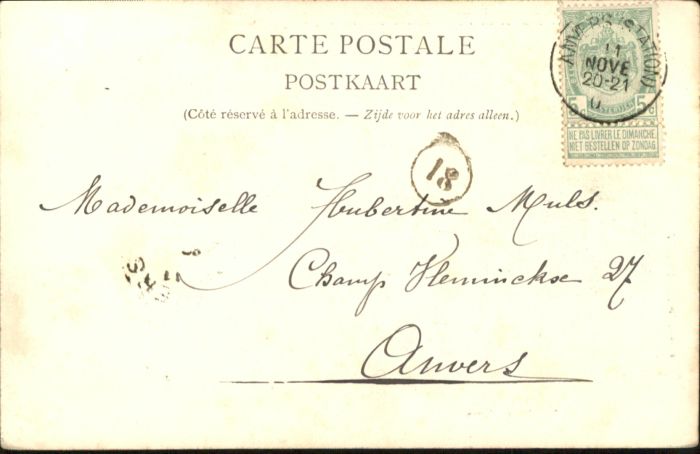 CARTE POSTALE
POSTKAART
(Côté réservé à l'adresse. — Zijde voor het adres alleen.)
ANVERS (STATION)
11
NOVE
20-21
5
5
NE PAS LIVRER LE DIMANCHE
NIET BESTELLEN OP ZONDAG
18
Mademoiselle Hubertine Muls.
Champ Vleminckse 27
Anvers